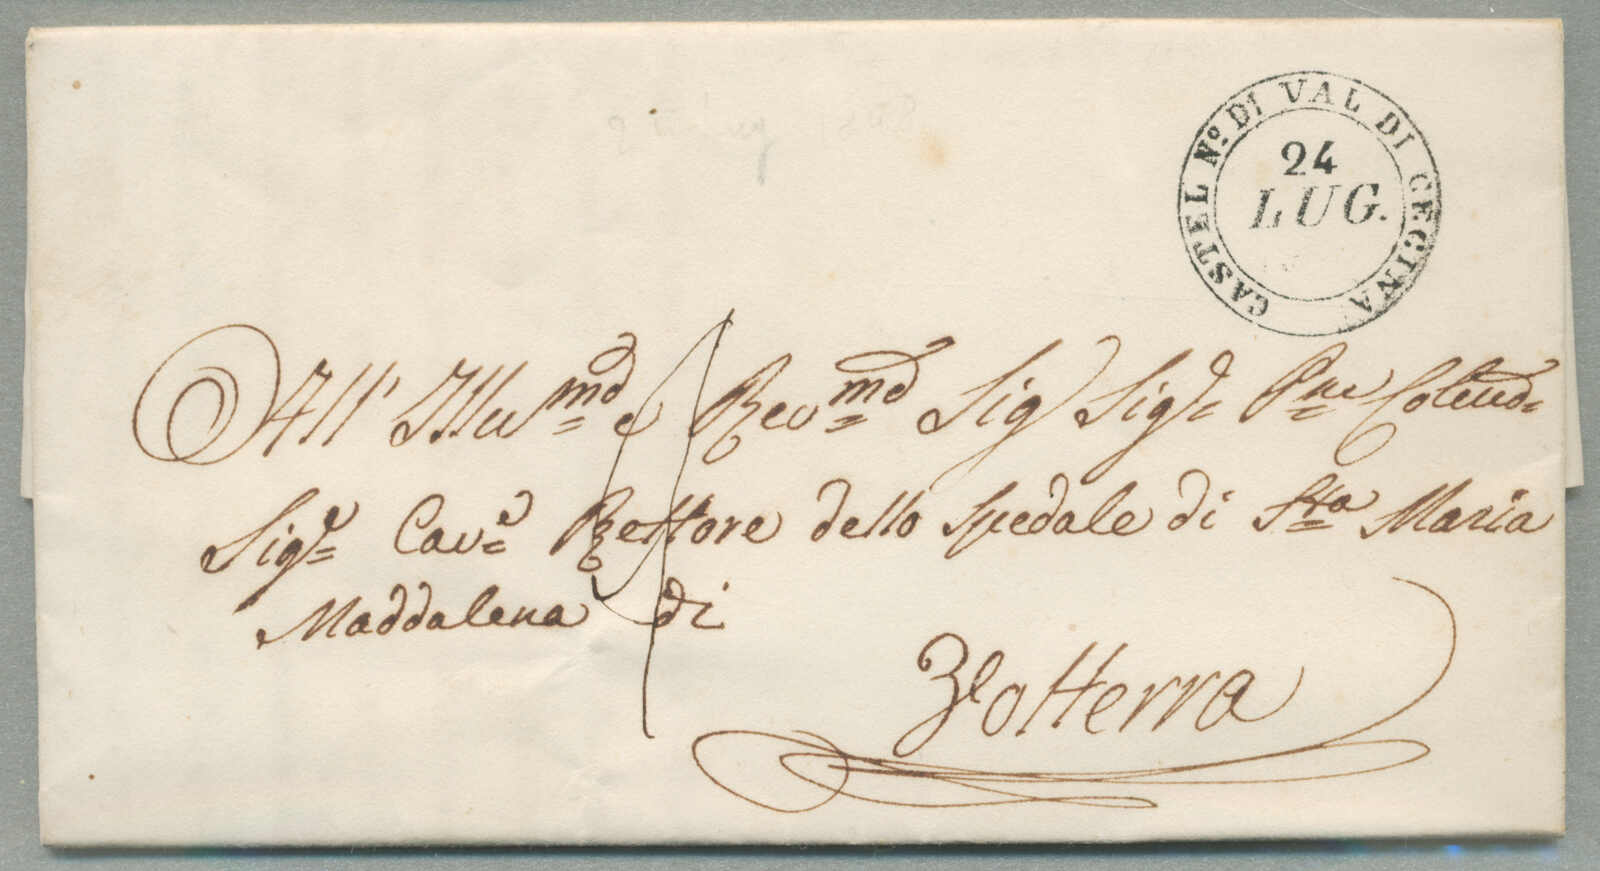 CASTEL Nº. DI VAL DI CECINA
24
LUG.
All' Illusmo e Revmo Sig Sigr Pne Colendo
Sigre Cave Rettore dello Spedale di Sta Maria
Maddalena di
Volterra